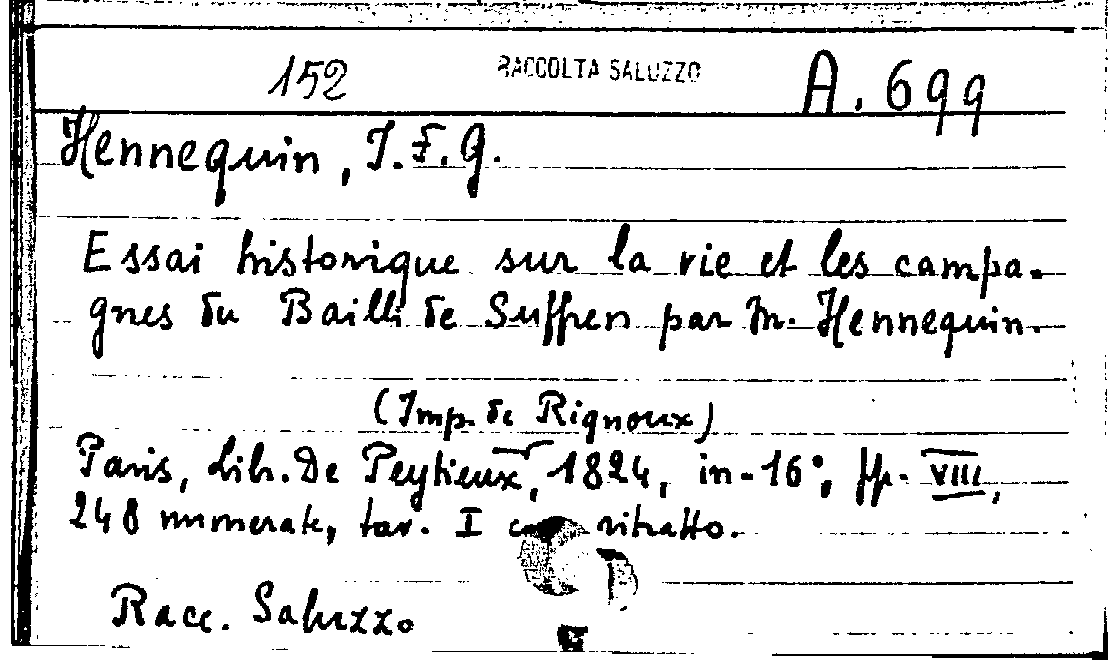 152 RACCOLTA SALUZZO A. 699
Hennequin, J.F.G.
Essai historique sur la vie et les campa-
gnes du Bailli de Suffren par M. Hennequin.
(Imp. de Rignoux)
Paris, Lib. De Peytieux, 1824, in-16°, pp. VIII,
248 numerate, tav. I con ritratto.
Racc. Saluzzo